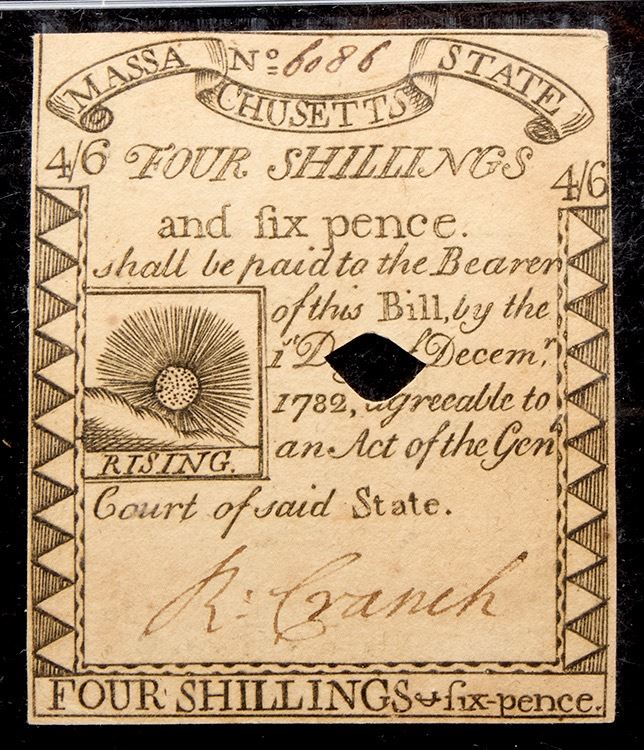 MASSA CHUSETTS STATE
Nº 6086
4/6 FOUR SHILLINGS 4/6
and ſix pence.
shall be paid to the Bearer
of this Bill, by the
1ˢᵗ D Decemʳ,
1782, agreeable to
RISING.
an Act of the Genˡ
Court of said State.
R: Cranch
FOUR SHILLINGS & ſix-pence.